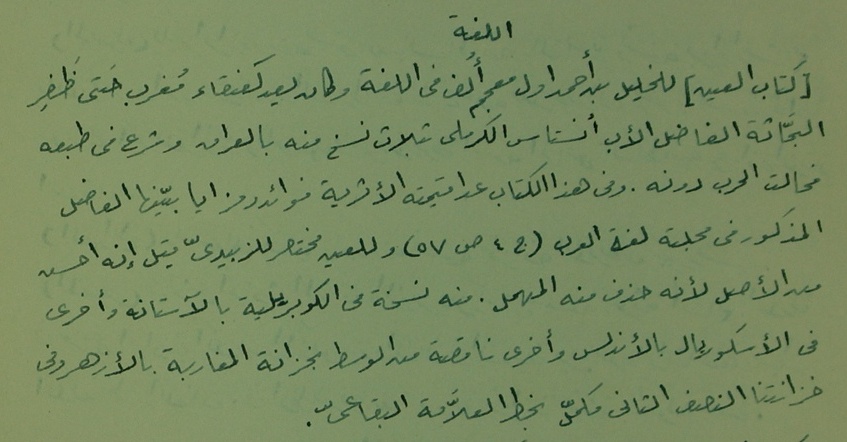 اللغة
[كتاب العين] للخليل بن أحمد اول معجم أُلف فى اللغة وكان يعد كعنقاء مُغرب حَتى ظَفِر
البحّاثة الفاضل الأب أنستاس الكرملى بثلاث نسخ منه بالعراق وشرع فى طبعه
فحالت الحرب دونه . وفى هذا الكتاب عدا قيمته الأثرية فوائد ومزايا بيّنها الفاضل
المذكور فى مجلته لغة العرب (ج ٤ ص ٥٧) وللعين مختصر للزبيدىّ قيل إنه أحسن
من الأصل لأنه حذف منه المهمل . منه نسخة فى الكوبريلية بالآستانة وأخرى
فى الأسكوريال بالأندلس وأخرى ناقصة من الوسط بخزانة المغاربة بالأزهر وفى
خزانتنا النصف الثانى مكملّ بخط العلاَّمة البقاعىّ .